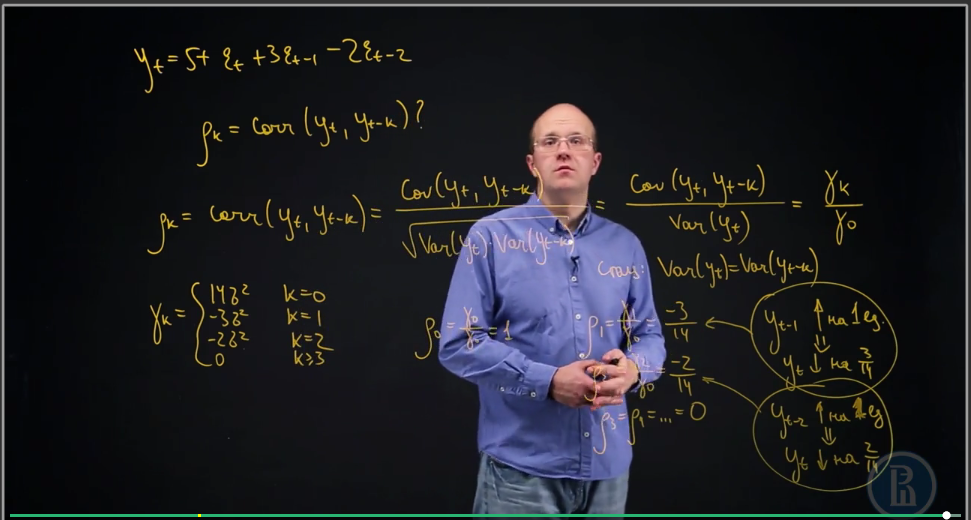 y_t = 5 + ε_t + 3ε_{t-1} - 2ε_{t-2}
ρ_k = corr(y_t, y_{t-k})?
ρ_k = corr(y_t, y_{t-k}) = Cov(y_t, y_{t-k}) / √(Var(y_t)·Var(y_{t-k})) = Cov(y_t, y_{t-k}) / Var(y_t) = γ_k / γ_0
Стац: Var(y_t) = Var(y_{t-k})
γ_k = { 14σ² k=0
-3σ² k=1
-2σ² k=2
0 k≥3
ρ_0 = γ_0/γ_0 = 1
ρ_1 = γ_1/γ_0 = -3/14
γ_0 = -2/14
ρ_3 = ρ_4 = ... = 0
y_{t-1} ↑ на 1 ед.
⇓
y_t ↓ на 3/14
y_{t-2} ↑ на 1 ед
⇓
y_t ↓ на 2/14